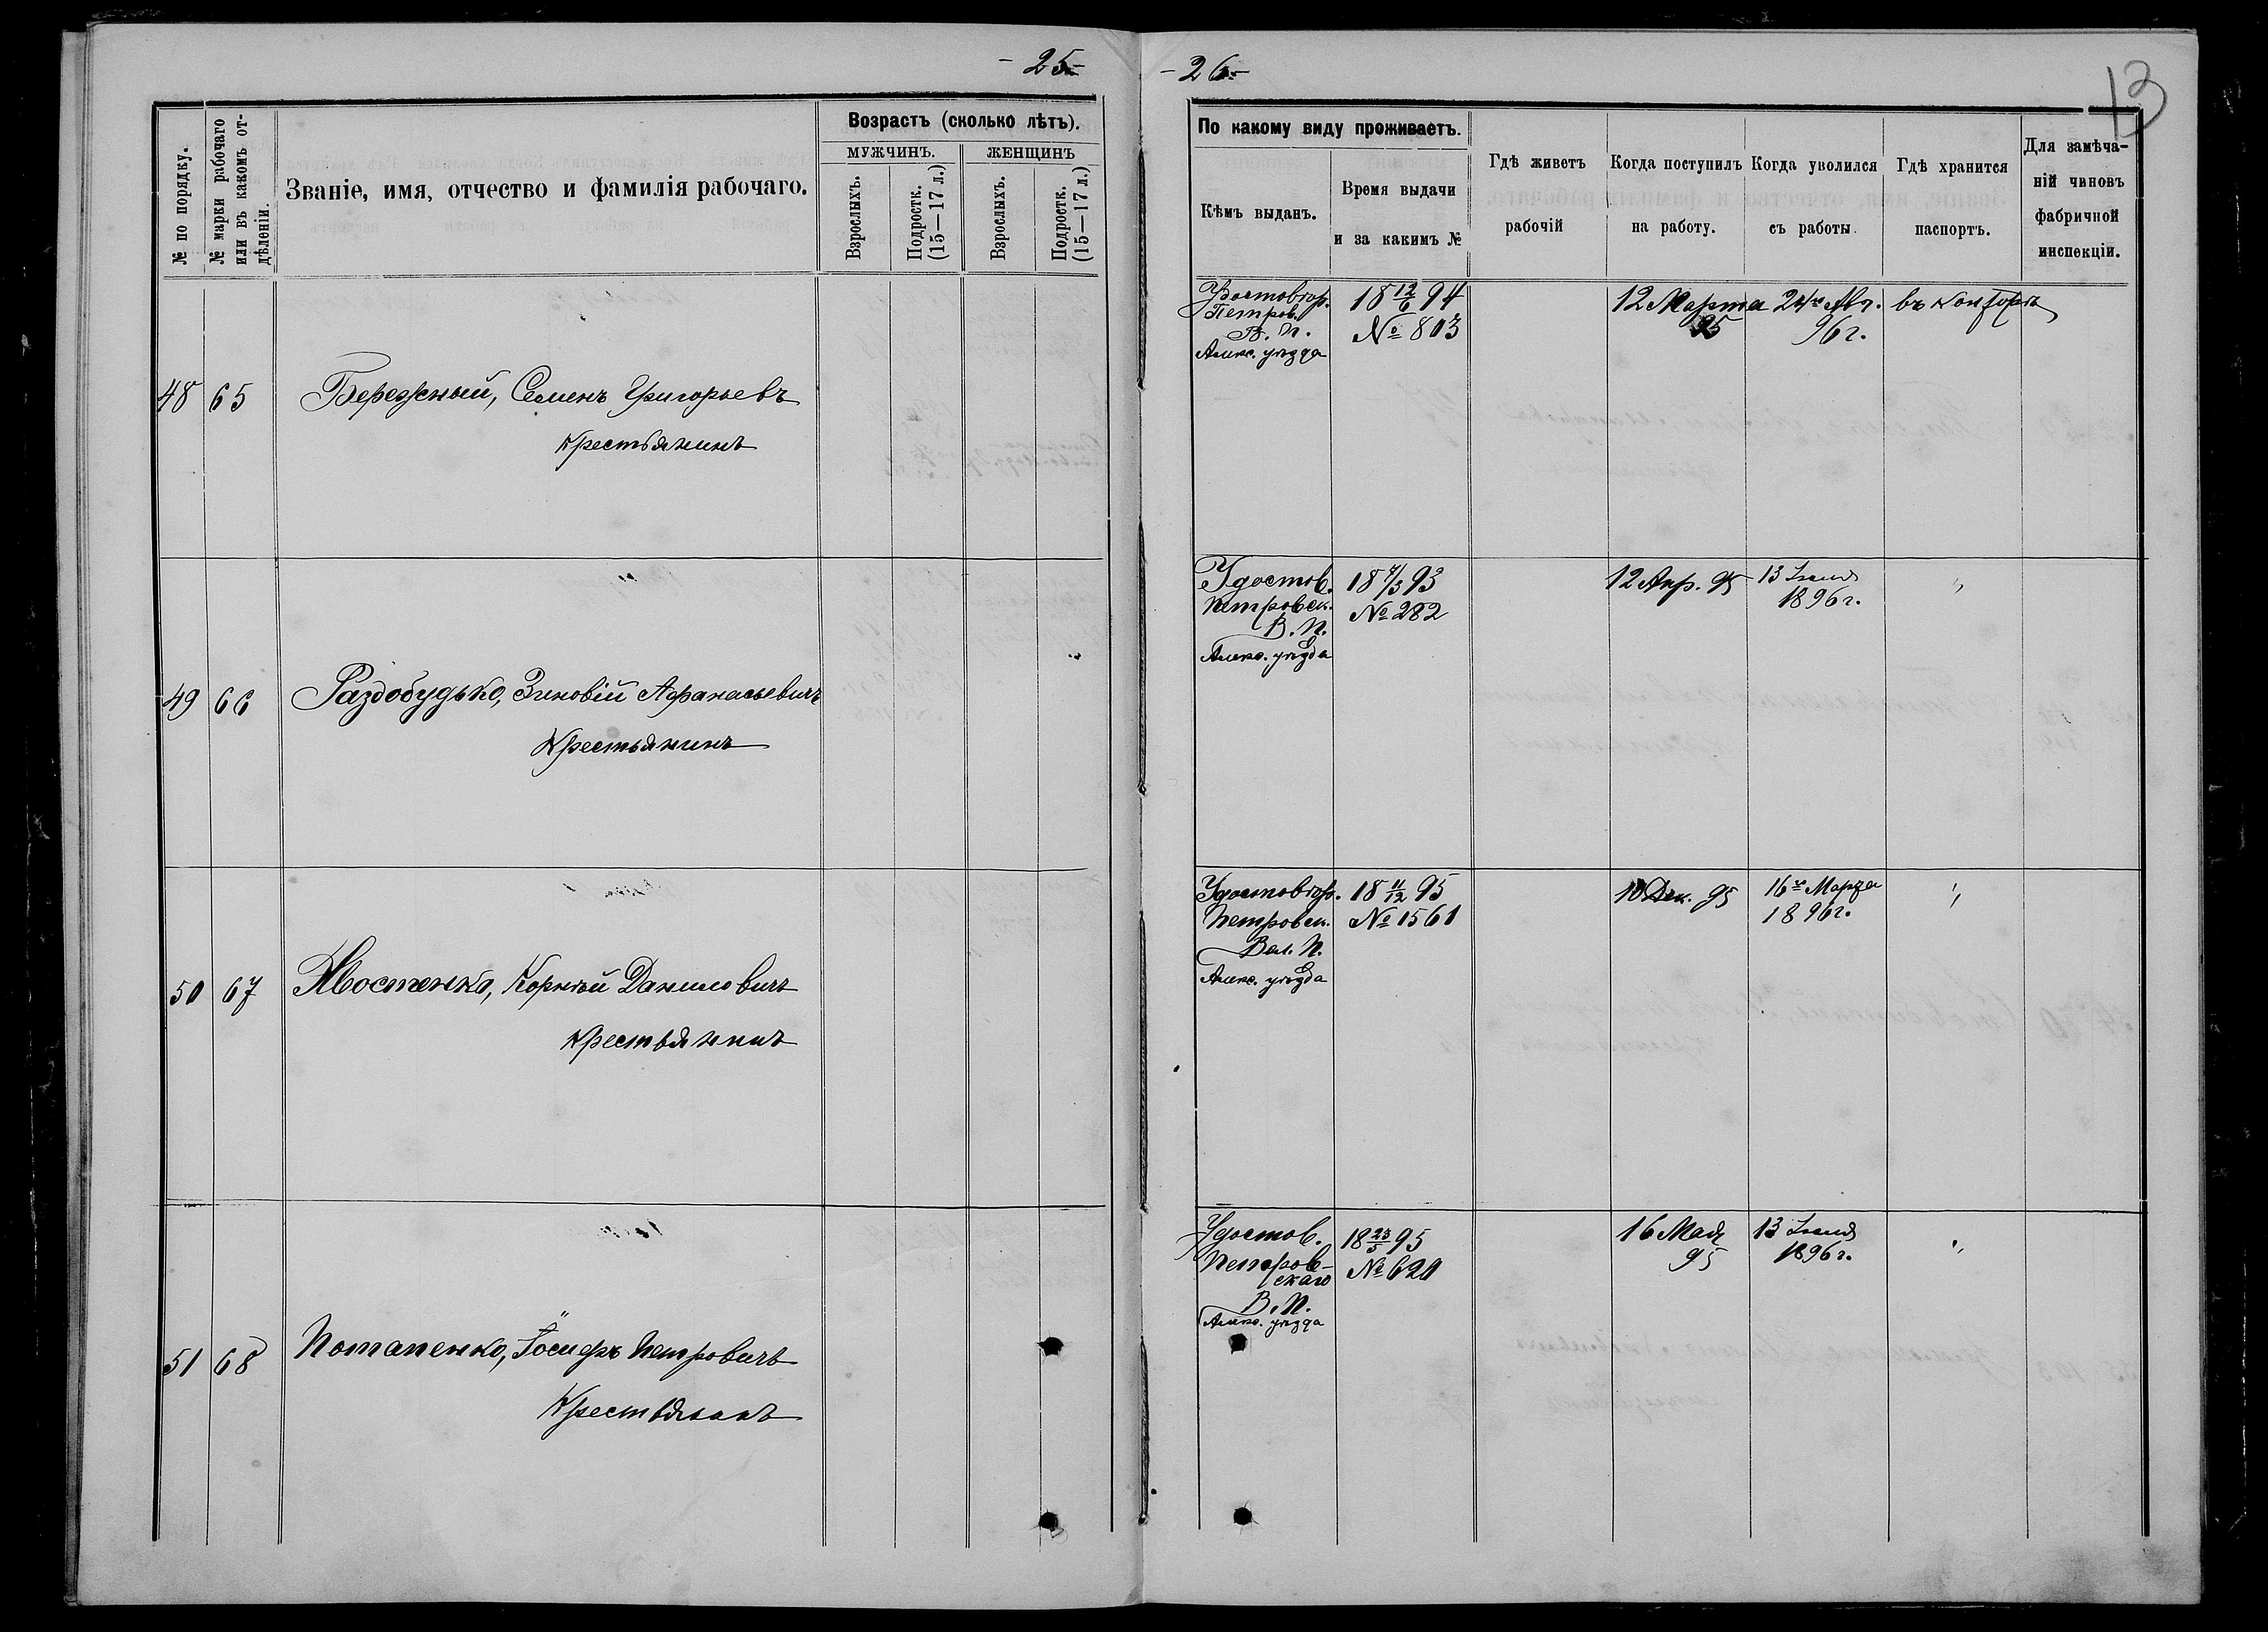 - 25 -
№ по порядку.
№ марки рабочаго или въ какомъ отдѣленіи.
Званіе, имя, отчество и фамилія рабочаго.
Возрастъ (сколько лѣтъ).
МУЖЧИНЪ.
ЖЕНЩИНЪ
Взрослыхъ.
Подростк. (15—17 л.)
Взрослыхъ.
Подростк. (15—17 л.)
48 65 Бережный, Семенъ Григорьевъ
Крестьянинъ
49 66 Раздобудько, Зиновій Афанасьевичъ
Крестьянинъ
50 67 Хвостенко, Корнѣй Даниловичъ
Крестьянинъ
51 68 Потапенко, Іосифъ Петровичъ
Крестьянинъ
- 26 -
13
По какому виду проживаетъ.
Кѣмъ выданъ.
Время выдачи
и за какимъ №
Гдѣ живетъ
рабочій
Когда поступилъ
на работу.
Когда уволился
съ работы.
Гдѣ хранится
паспортъ.
Для замѣча-
ній чиновъ
фабричной
инспекціи.
Удостовѣр. 18 12/6 94 12 Марта 24го Авг. въ конторѣ
Петров. № 803 95 96 г.
В. П.
Алекс. уѣзда
Удостов. 18 4/3 93 12 Апр. 95 13 Іюня "
Петровск. № 282 1896 г.
В. П.
Алекс. уѣзда
Удостовѣр. 18 11/12 95 10 Дек. 95 16го Марта "
Петровск. № 1561 1896 г.
Вол. П.
Алекс. уѣзда
Удостов. 18 23/5 95 16 Мая 13 Іюня "
Петров- № 620 95 1896 г.
скаго
В. П.
Алекс. уѣзда